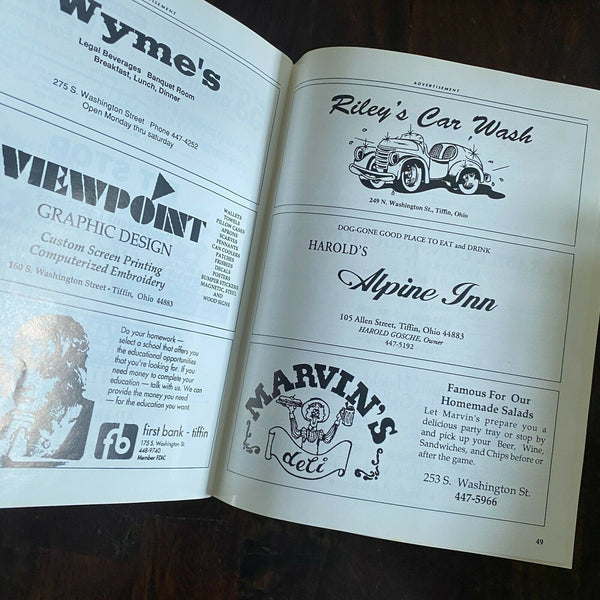 ADVERTISEMENT
Wyme's
Legal Beverages Banquet Room
Breakfast, Lunch, Dinner
275 S. Washington Street Phone 447-4252
Open Monday thru saturday
VIEWPOINT
GRAPHIC DESIGN
Custom Screen Printing
Computerized Embroidery
160 S. Washington Street - Tiffin, Ohio 44883
WALLETS
TOWELS
PILLOW CASES
APRONS
SCARVES
PENNANTS
CAN COOLERS
PATCHES
FRISBEES
DECALS
POSTERS
BUMPER STICKERS
MAGNETIC, STEEL
AND
WOOD SIGNS
Do your homework —
select a school that offers you
the educational opportunities
that you're looking for. If you
need money to complete your
education — talk with us. We can
provide the money you need
— for the education you want.
fb
first bank - tiffin
175 S. Washington St.
448-9740
Member FDIC
ADVERTISEMENT
Riley's Car Wash
249 N. Washington St., Tiffin, Ohio
DOG-GONE GOOD PLACE TO EAT and DRINK
HAROLD'S
Alpine Inn
105 Allen Street, Tiffin, Ohio 44883
HAROLD GOSCHE, Owner
447-5192
MARVIN'S
deli
Famous For Our
Homemade Salads
Let Marvin's prepare you a
delicious party tray or stop by
and pick up your Beer, Wine,
Sandwiches, and Chips before or
after the game.
253 S. Washington St.
447-5966
49